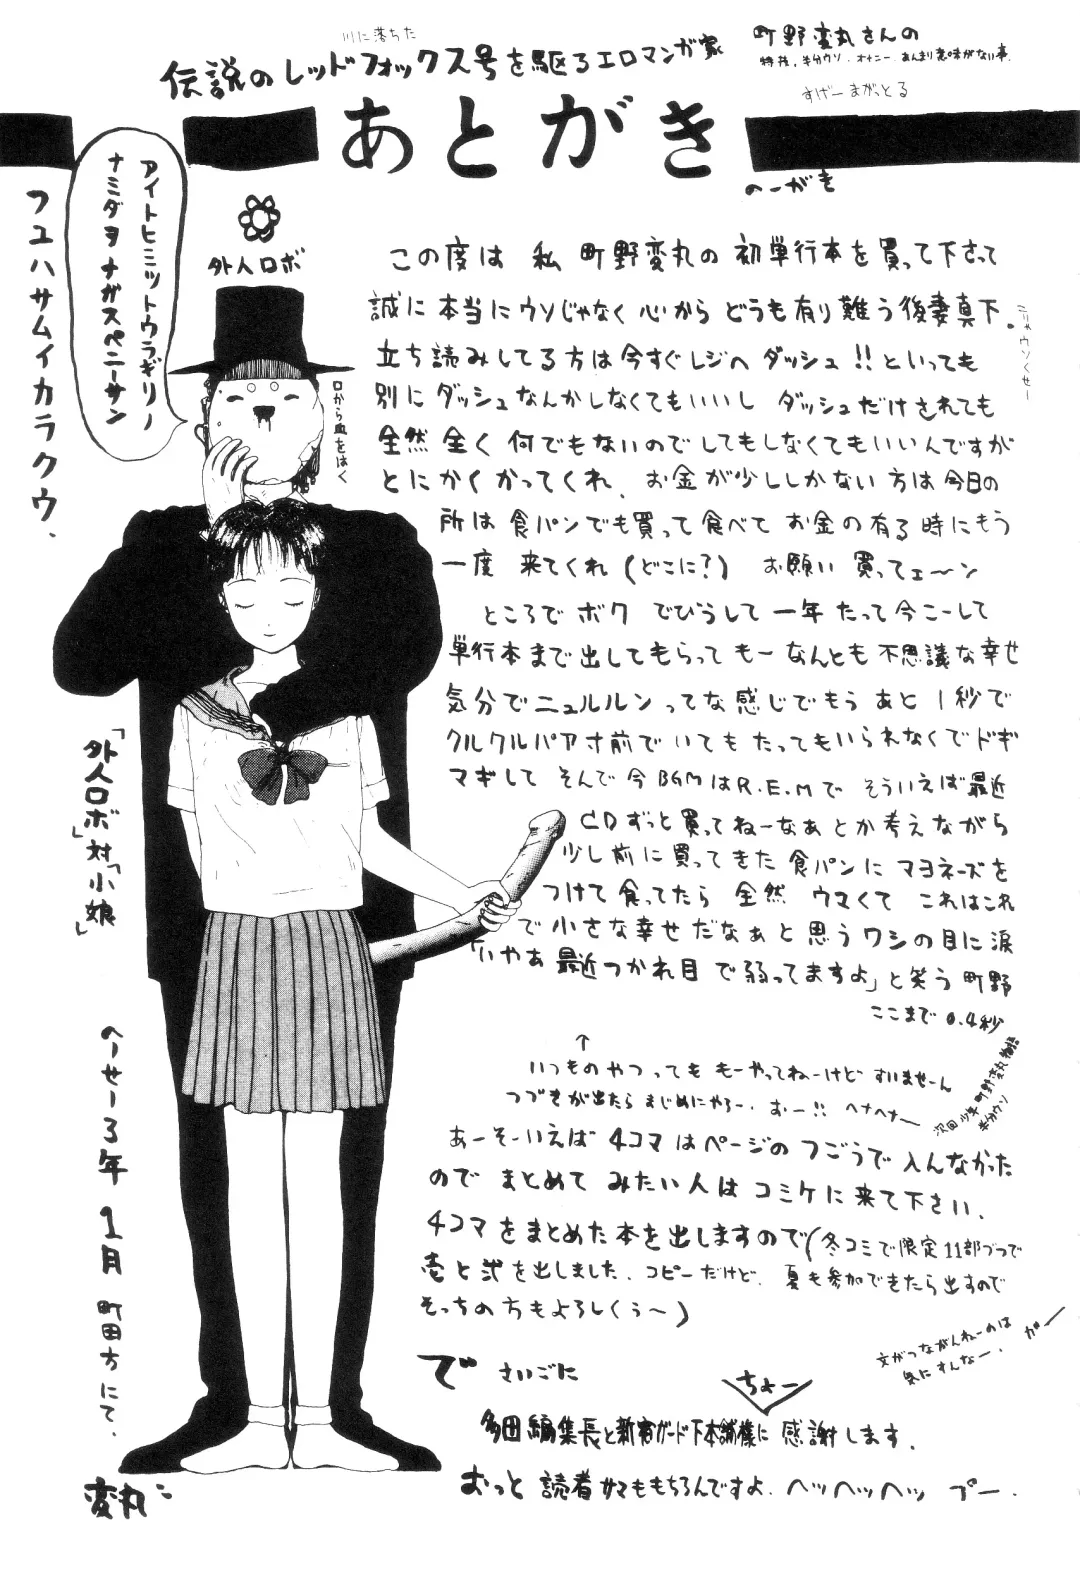 川に落ちた
伝説のレッドフォックス号を駆るエロマンガ家
町野変丸さんの
特技。半分ウソ、オナニー、あんまり意味がない事。
すげーまがっとる
あとがき
のーがき
アイトヒミツトウラギリノ
ナミダヲナガスペニーサン
フユハサムイカラクウ.
外人ロボ
口から血をはく
この度は 私 町野変丸の 初単行本を 買って下さって
誠に 本当に ウソじゃなく 心から どうも有り難う後妻真下。
こりゃウソくせー
立ち読みしてる方は今すぐレジへ ダッシュ!! といっても
別に ダッシュなんかしなくてもいいし ダッシュだけされても
全然 全く 何でもないのでしてもしなくてもいいんですが
とにかくかってくれ、お金が少ししかない方は今日の
所は 食パンでも買って食べて お金の有る時にもう
一度 来てくれ(どこに?) お願い 買ってェ〜ン
ところで ボク でびうして 一年 たって今こーして
単行本まで出してもらって もー なんとも不思議な幸せ
気分で ニュルルン ってな感じで もう あと 1秒で
クルクルパア寸前で いても たってもいられなくて ドギ
マギして そんで 今 BGMはR.E.Mで そういえば最近
CDずっと買ってねーなあ とか考えながら
少し前に買ってきた食パンに マヨネーズを
つけて 食ってたら 全然 ウマくて これはこれ
で小さな幸せだなぁと思うワシの目に涙
「いやあ最近つかれ目で弱ってますよ」と笑う町野
ここまで0.4秒
↑
いつものやつっても もーやってねーけど すいませーん
つづきが出たら まじめにやろー. おー!! ヘナヘナー
次回 少年町野変丸物語
半分ウソ
あーそーいえば 4コマはページのつごうで入んなかった
ので まとめて みたい人は コミケに来て下さい.
4コマをまとめた本を出しますので(冬コミで限定11部づつで
壱と弐を出しました. コピーだけど. 夏も参加できたら出すので
そっちの方もよろしくぅ〜)
文がつながんねーのは
気にすんなー. ガー
で さいごに
ちょー
多田編集長と新宿ガード下本舗様に 感謝します.
おっと 読者サマももちろんですよ. ヘッヘッヘッ プー.
「外人ロボ」対「小娘」
へーせー3年 1月 町田方にて.
変丸